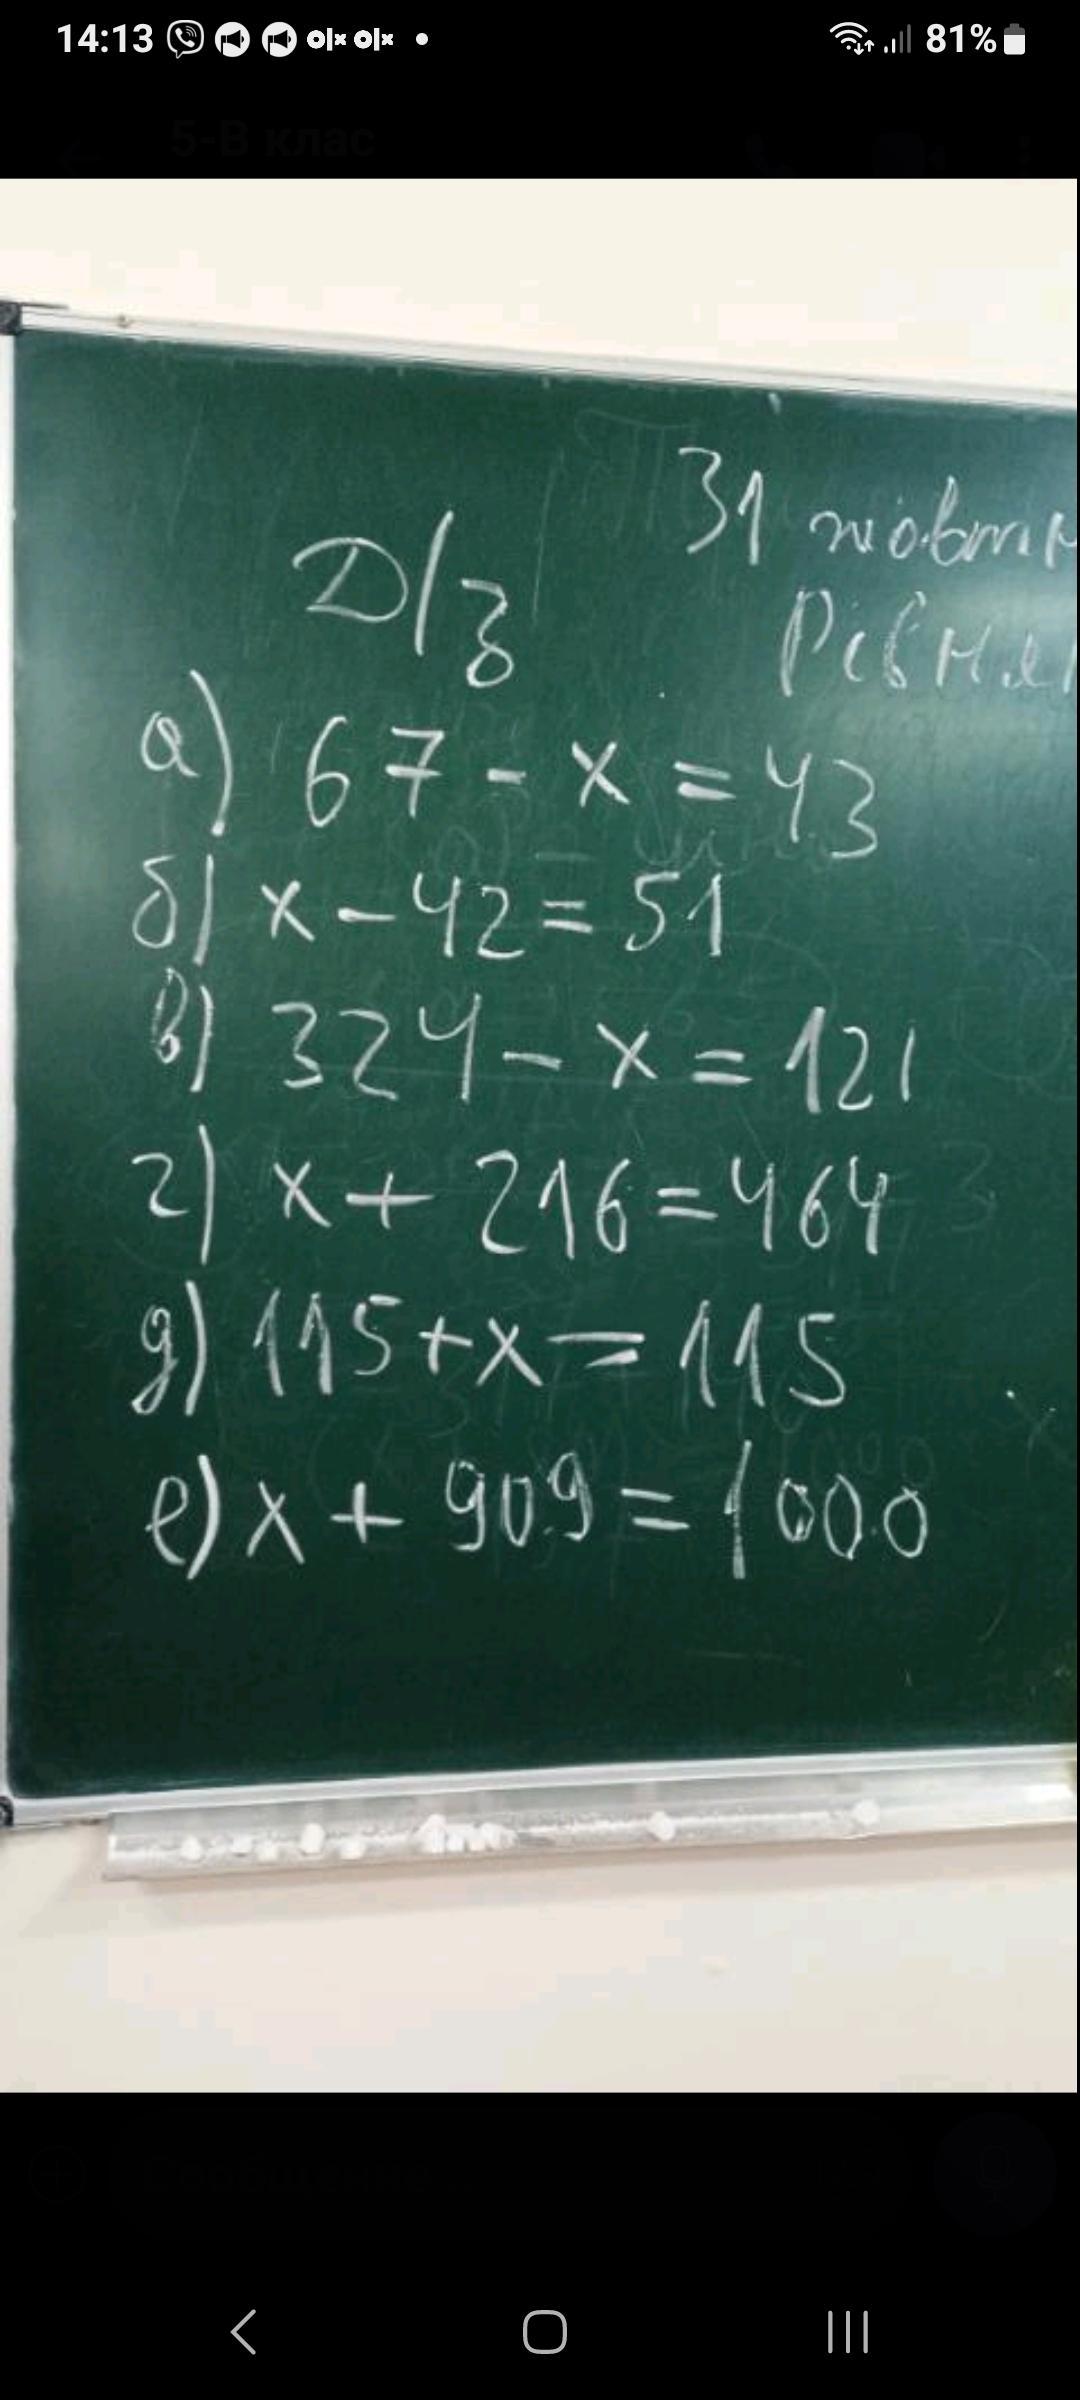 14:13 81%
5-В клас
31
Д/з
а) 67 - x = 43
б) x - 42 = 51
в) 324 - x = 121
г) x + 216 = 464
д) 115 + x = 115
е) x + 909 = 1000